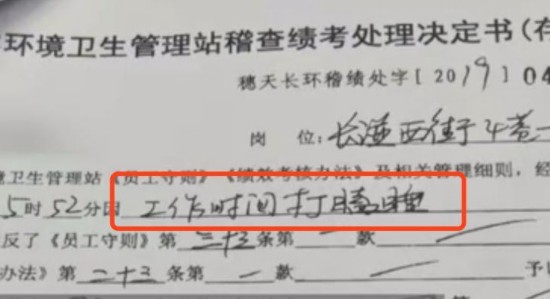 环境卫生管理站稽查绩考处理决定书(存
穗天长环稽绩处字[2019]04
岗 位:长湴西街
境卫生管理站《员工守则》《绩效考核办法》及相关管理细则,经
5时52分因 工作时间打瞌睡
反了《员工守则》第二十三条第一款
办法》第二十三条第一款 予